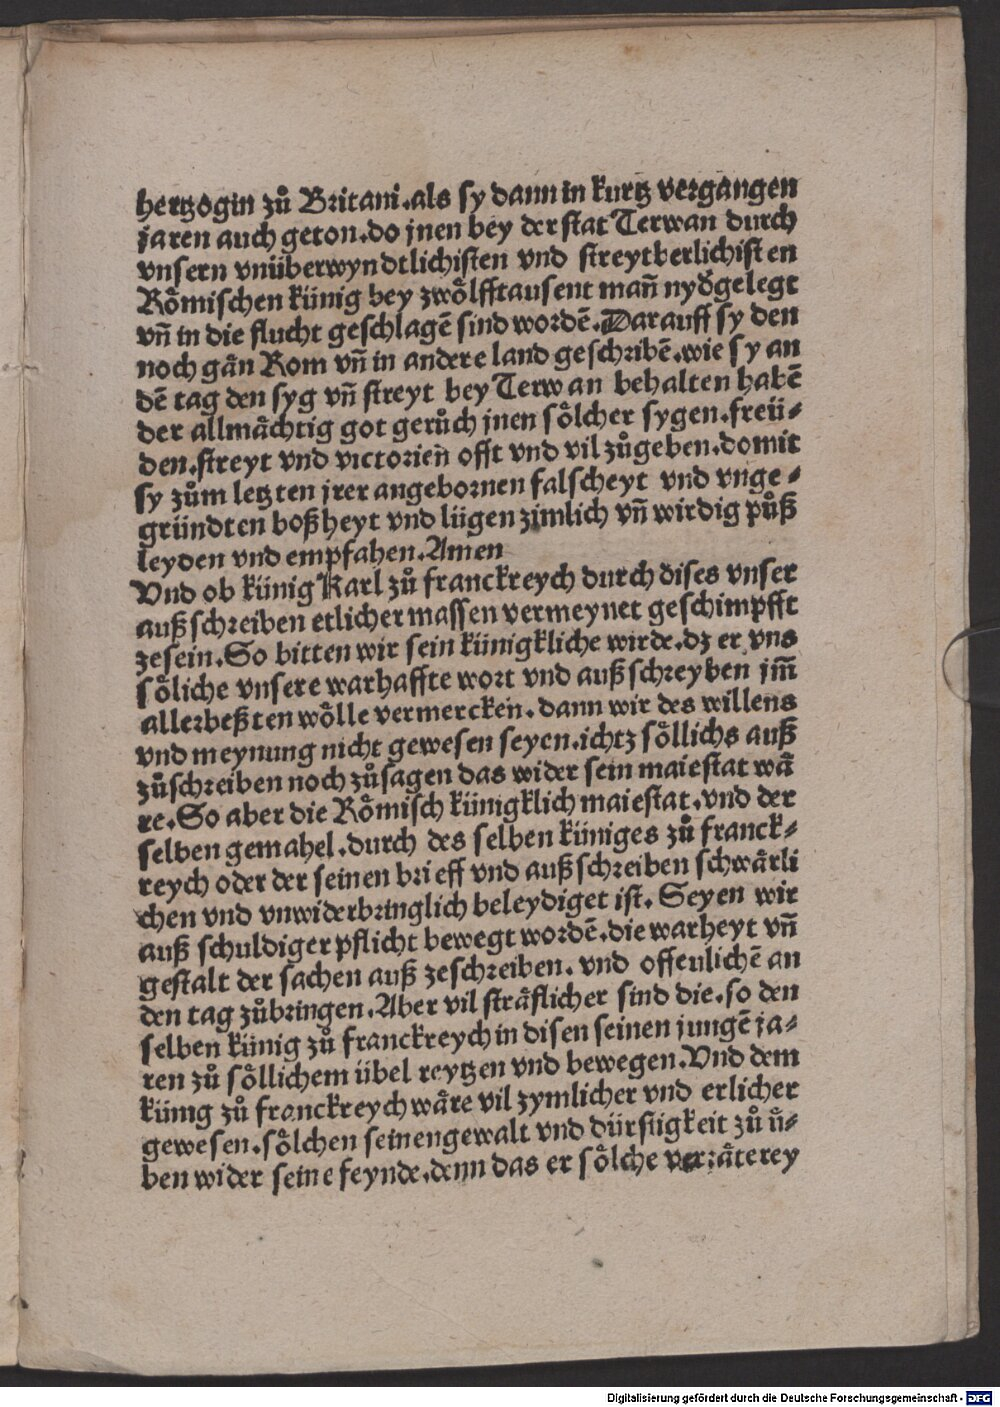 hertzogin zů Britani.als sy dann in kurtz vergangen
jaren auch geton.do jnen bey der stat Terwan durch
vnsern vnüberwyndtlichisten vnd streytberlichisten
Rômischen künig bey zwôlfftausent mañ nydˀgelegt
vñ in die flucht geschlagē sind wordē.Darauff sy den
noch gân Rom vñ in andere land geschribē.wie sy an
dē tag den syg vñ streyt bey Terwan behalten habē
der allmâchtig got gerůch jnen sôlcher sygen.freü-
den.streyt vnd victorieñ offt vnd vil zůgeben.domit
sy zům letzten jrer angebornen falscheyt vnd vnge-
gründten boßheyt vnd lügen zimlich vñ wirdig půß
leyden vnd empfahen.Amen
Vnd ob künig Karl zů franckreych durch dises vnser
außschreiben etlicher massen vermeynet geschimpfft
zesein.So bitten wir sein künigkliche wirde.dz er vns
sôliche vnsere warhaffte wort vnd außschreyben jm̄
allerbeßten wôlle vermercken.dann wir des willens
vnd meynung nicht gewesen seyen.ichtz sôllichs auß
zůschreiben noch zůsagen das wider sein maiestat wâ
re.So aber die Rômisch künigklich maiestat.vnd der
selben gemahel.durch des selben küniges zů franck-
reych oder der seinen brieff vnd außschreiben schwârli
chen vnd vnwiderbringlich beleydiget ist.Seyen wir
auß schuldiger pflicht bewegt wordē.die warheyt vñ
gestalt der sachen auß zeschreiben.vnd offenlichē an
den tag zůbringen.Aber vil strâflicher sind die.so den
selben künig zů franckreych in disen seinen jungē ja-
ren zů sôllichem übel reytzen vnd bewegen.Vnd dem
künig zů franckreych wâre vil zymlicher vnd erlicher
gewesen.sôlchen seinen gewalt vnd dürstigkeit zů ü-
ben wider seine feynde.denn das er sôlche verrâterey
Digitalisierung gefördert durch die Deutsche Forschungsgemeinschaft - DFG